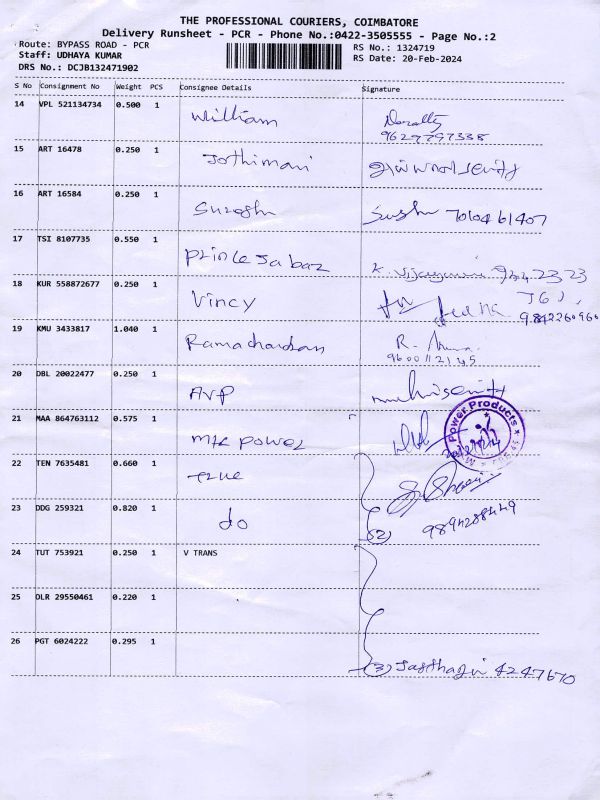 THE PROFESSIONAL COURIERS, COIMBATORE
Delivery Runsheet - PCR - Phone No.:0422-3505555 - Page No.:2
Route: BYPASS ROAD - PCR
RS No.: 1324719
Staff: UDHAYA KUMAR
RS Date: 20-Feb-2024
DRS No.: DCJB132471902
S No Consignment No Weight PCS Consignee Details Signature
14 VPL 521134734 0.500 1 William
9629797338
15 ART 16478 0.250 1 Jothimani
16 ART 16584 0.250 1 Suresh 7010461407
17 TSI 8107735 0.550 1 Prince Jabaz K. 
18 KUR 558872677 0.250 1 Vincy
9842260960
19 KMU 3433817 1.040 1 Ramachandran R.
9600112145
20 DBL 20022477 0.250 1 AVP
21 MAA 864763112 0.575 1 MTK Power Power Products
22 TEN 7635481 0.660 1 true
23 DDG 259321 0.820 1 do (2) 9894288449
24 TUT 753921 0.250 1 V TRANS
25 DLR 29550461 0.220 1
26 PGT 6024222 0.295 1 (3) 4247670